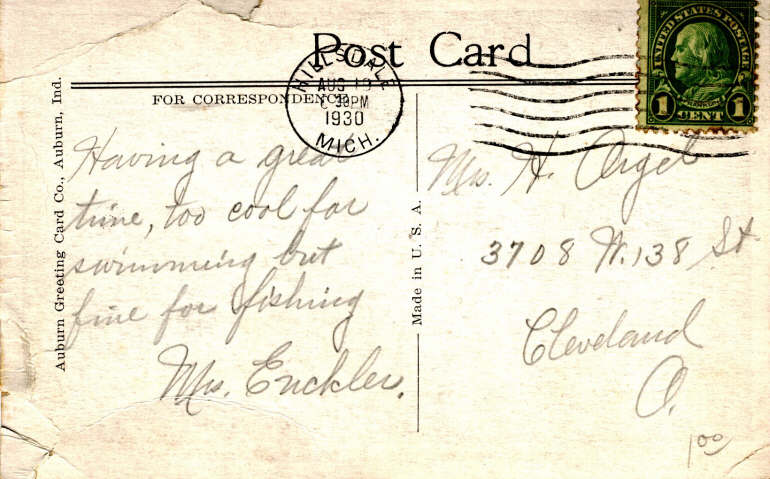 Post Card
FOR CORRESPONDENCE
HILLSDALE
AUG 19
30PM
1930
MICH.
UNITED STATES POSTAGE
FRANKLIN
1 CENT 1
Auburn Greeting Card Co., Auburn, Ind.
Having a great
time, too cool for
swimming but
fine for fishing
Mrs. Enckler.
Made in U. S. A.
Mrs. H. Orgel
3708 W. 138 St.
Cleveland
O.
1 00